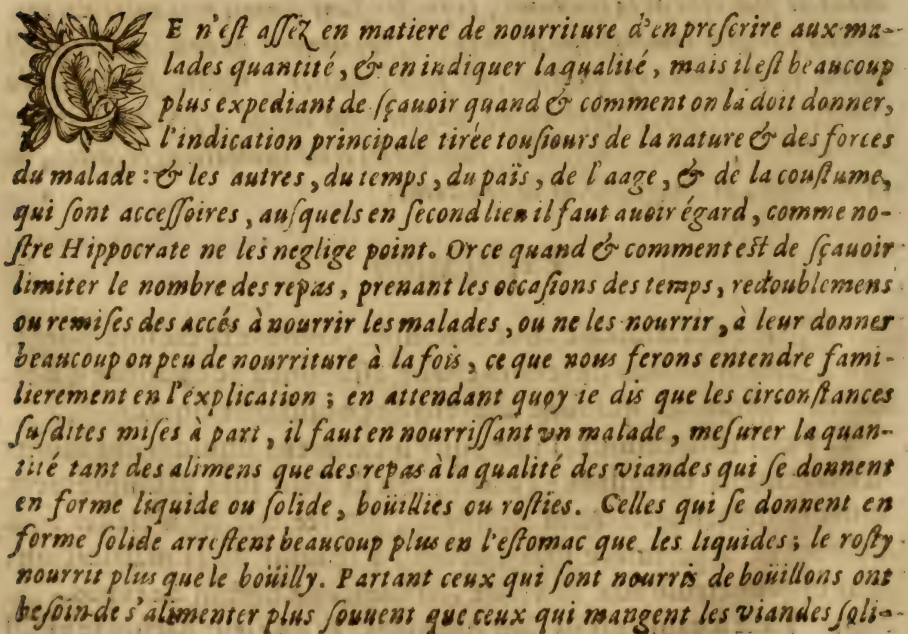 CE n'eſt aſſez en matiere de nourriture d'en preſcrire aux ma-
lades quantité, & en indiquer la qualité, mais il eſt beaucoup
plus expediant de ſçauoir quand & comment on la doit donner,
l'indication principale tirée touſiours de la nature & des forces
du malade: & les autres, du temps, du païs, de l'aage, & de la couſtume,
qui ſont acceſſoires, auſquels en ſecond lieu il faut auoir égard, comme no-
ſtre Hippocrate ne les neglige point. Or ce quand & comment eſt de ſçauoir
limiter le nombre des repas, prenant les occaſions des temps, redoublemens
ou remiſes des accés à nourrir les malades, ou ne les nourrir, à leur donner
beaucoup ou peu de nourriture à la fois, ce que nous ferons entendre fami-
lierement en l'explication; en attendant quoy ie dis que les circonſtances
ſuſdites miſes à part, il faut en nourriſſant vn malade, meſurer la quan-
tité tant des alimens que des repas à la qualité des viandes qui ſe donnent
en forme liquide ou ſolide, boüillies ou roſties. Celles qui ſe donnent en
forme ſolide arreſtent beaucoup plus en l'eſtomac que les liquides; le roſty
nourrit plus que le boüilly. Partant ceux qui ſont nourris de boüillons ont
beſoin de s'alimenter plus ſouuent que ceux qui mangent les viandes ſoli-